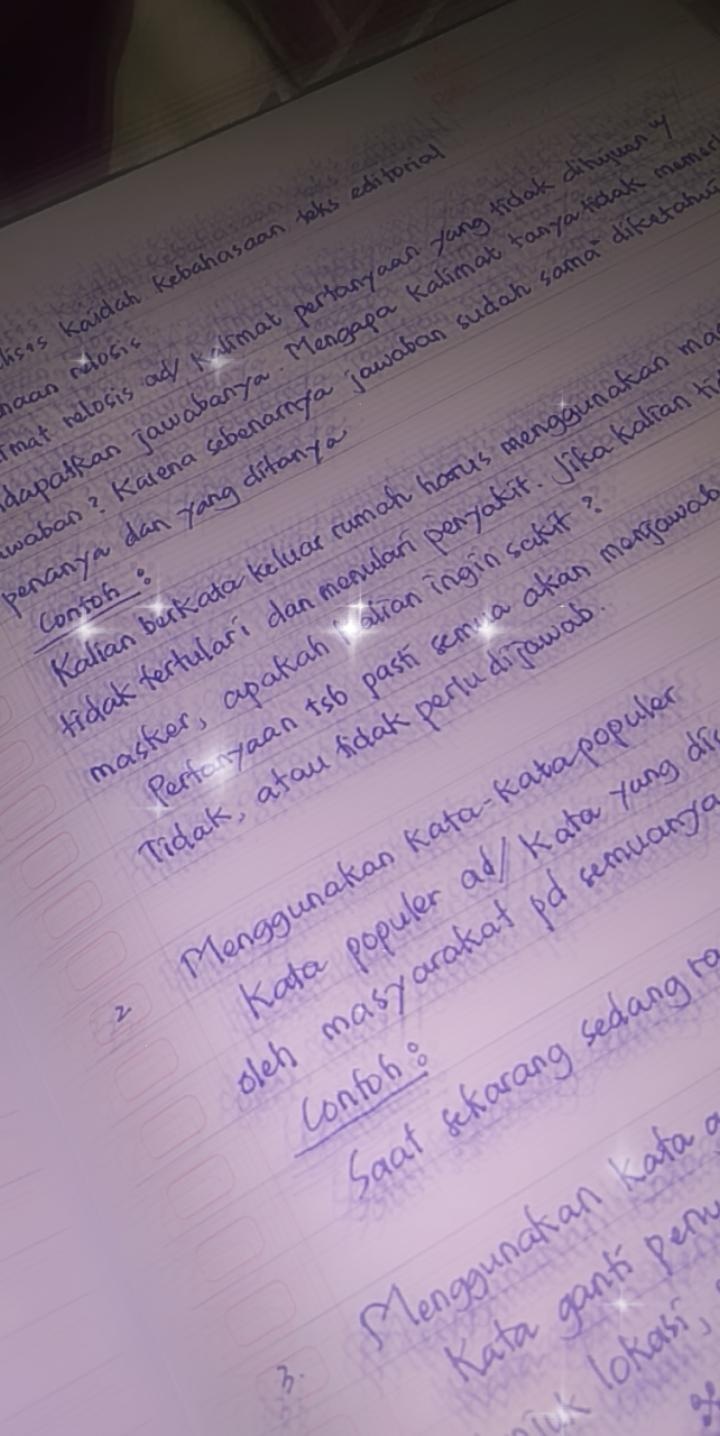 kaidah kebahasaan teks editorial
relosis
relosis ad/ kalimat pertanyaan yang tidak ditujuan u/
jawabanya. Mengapa kalimat tanya tidak
? Karena sebenarnya jawaban sudah sama" diketahui
penanya dan yang ditanya
Contoh :
Kalian berkata keluar rumah harus menggunakan
tidak tertulari dan menulari penyakit. Jika kalian
masker, apakah kalian ingin sakit ?
Pertanyaan tsb pasti semua akan menjawab
Tidak, atau tidak perlu dijawab.
2 Menggunakan kata-kata populer
Kata populer ad/ kata yang
oleh masyarakat pd semuanya
Contoh :
Saat sekarang sedang
3. Menggunakan kata
Kata ganti
lokasi,